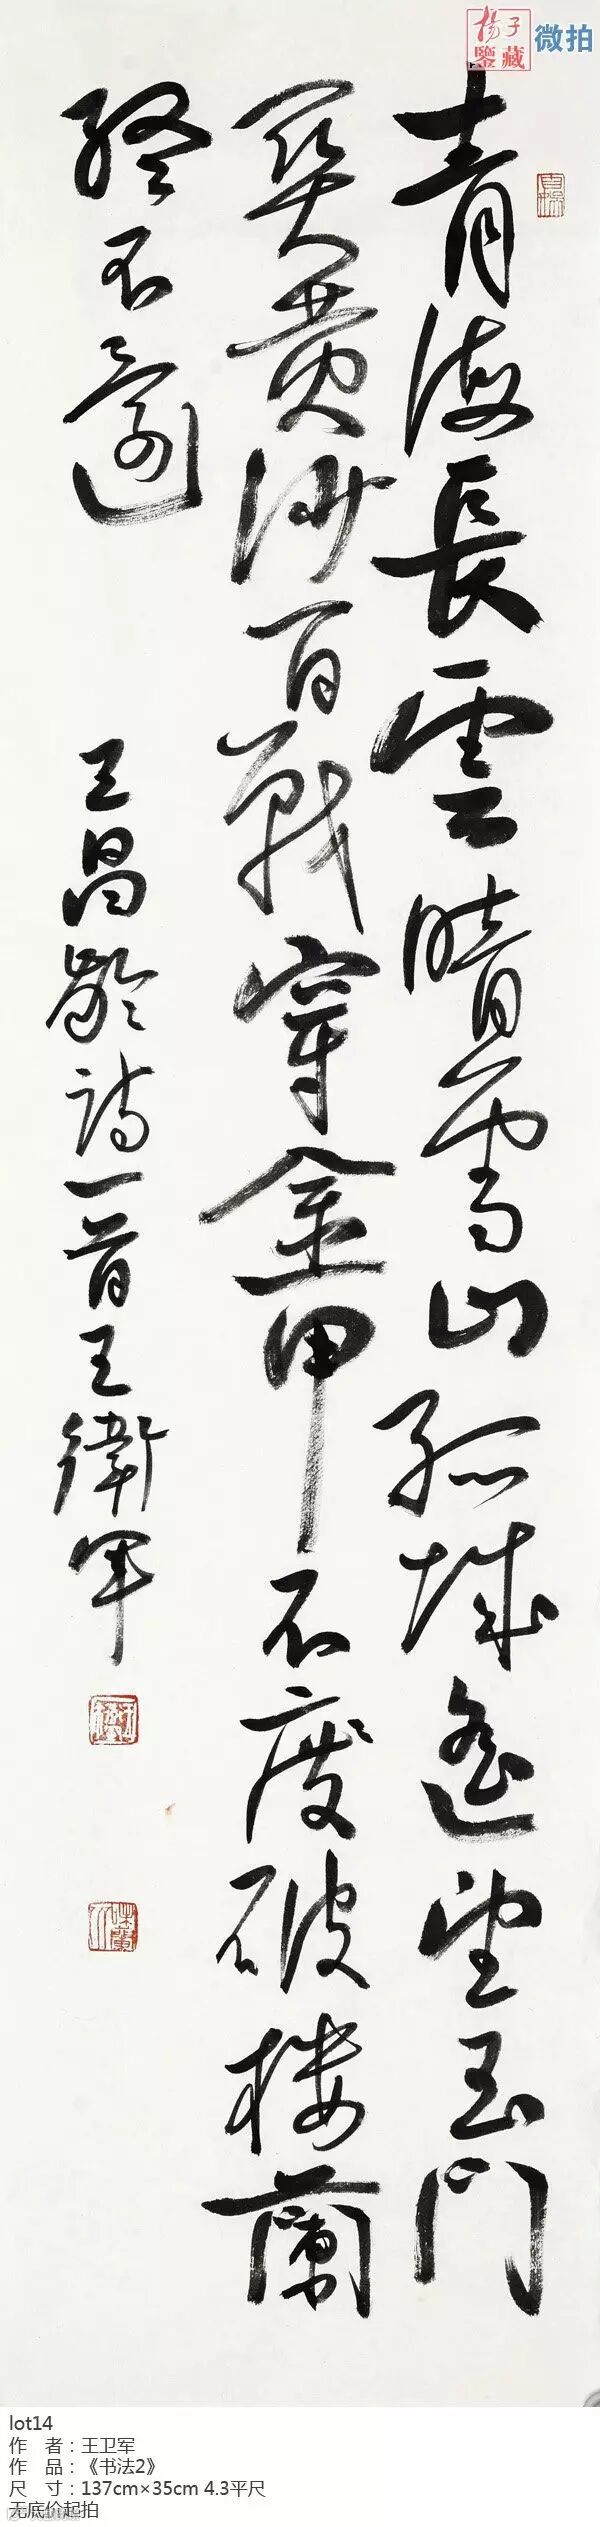 揚子
鑒藏
微拍
青海長雲暗雪山孤城遙望玉門
關黃沙百戰穿金甲不度破樓蘭
終不還
王昌齡詩一首王衛軍
lot14
作 者：王卫军
作 品：《书法2》
尺 寸：137cm×35cm 4.3平尺
无底价起拍